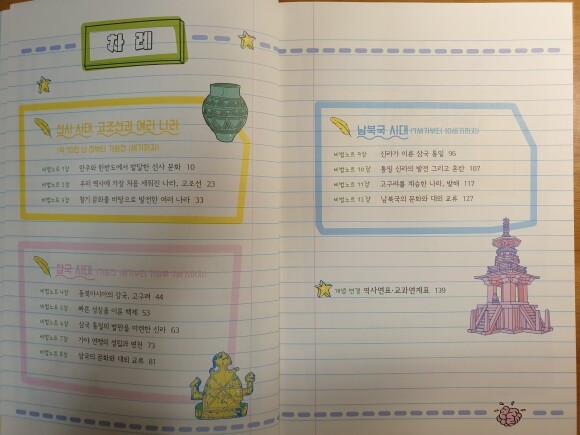 차 례
선사 시대 고조선과 여러 나라
비법노트 1장 만주와 한반도에서 발달한 선사 문화 10
비법노트 2장 우리 역사에 가장 처음 세워진 나라, 고조선 23
비법노트 3장 철기 문화를 바탕으로 발전한 여러 나라 33
삼국 시대
비법노트 4장 동북아시아의 강국, 고구려 44
비법노트 5장 빠른 성장을 이룬 백제 53
비법노트 6장 삼국 통일의 발판을 마련한 신라 63
비법노트 7장 가야 연맹의 성립과 발전 73
비법노트 8장 삼국의 문화와 대외 교류 81
남북국 시대 (7세기부터 10세기까지)
비법노트 9장 신라가 이룬 삼국 통일 95
비법노트 10장 통일 신라의 발전 그리고 혼란 107
비법노트 11장 고구려를 계승한 나라, 발해 117
비법노트 12장 남북국의 문화와 대외 교류 127
개념 연결 역사연표·교과연계표 139